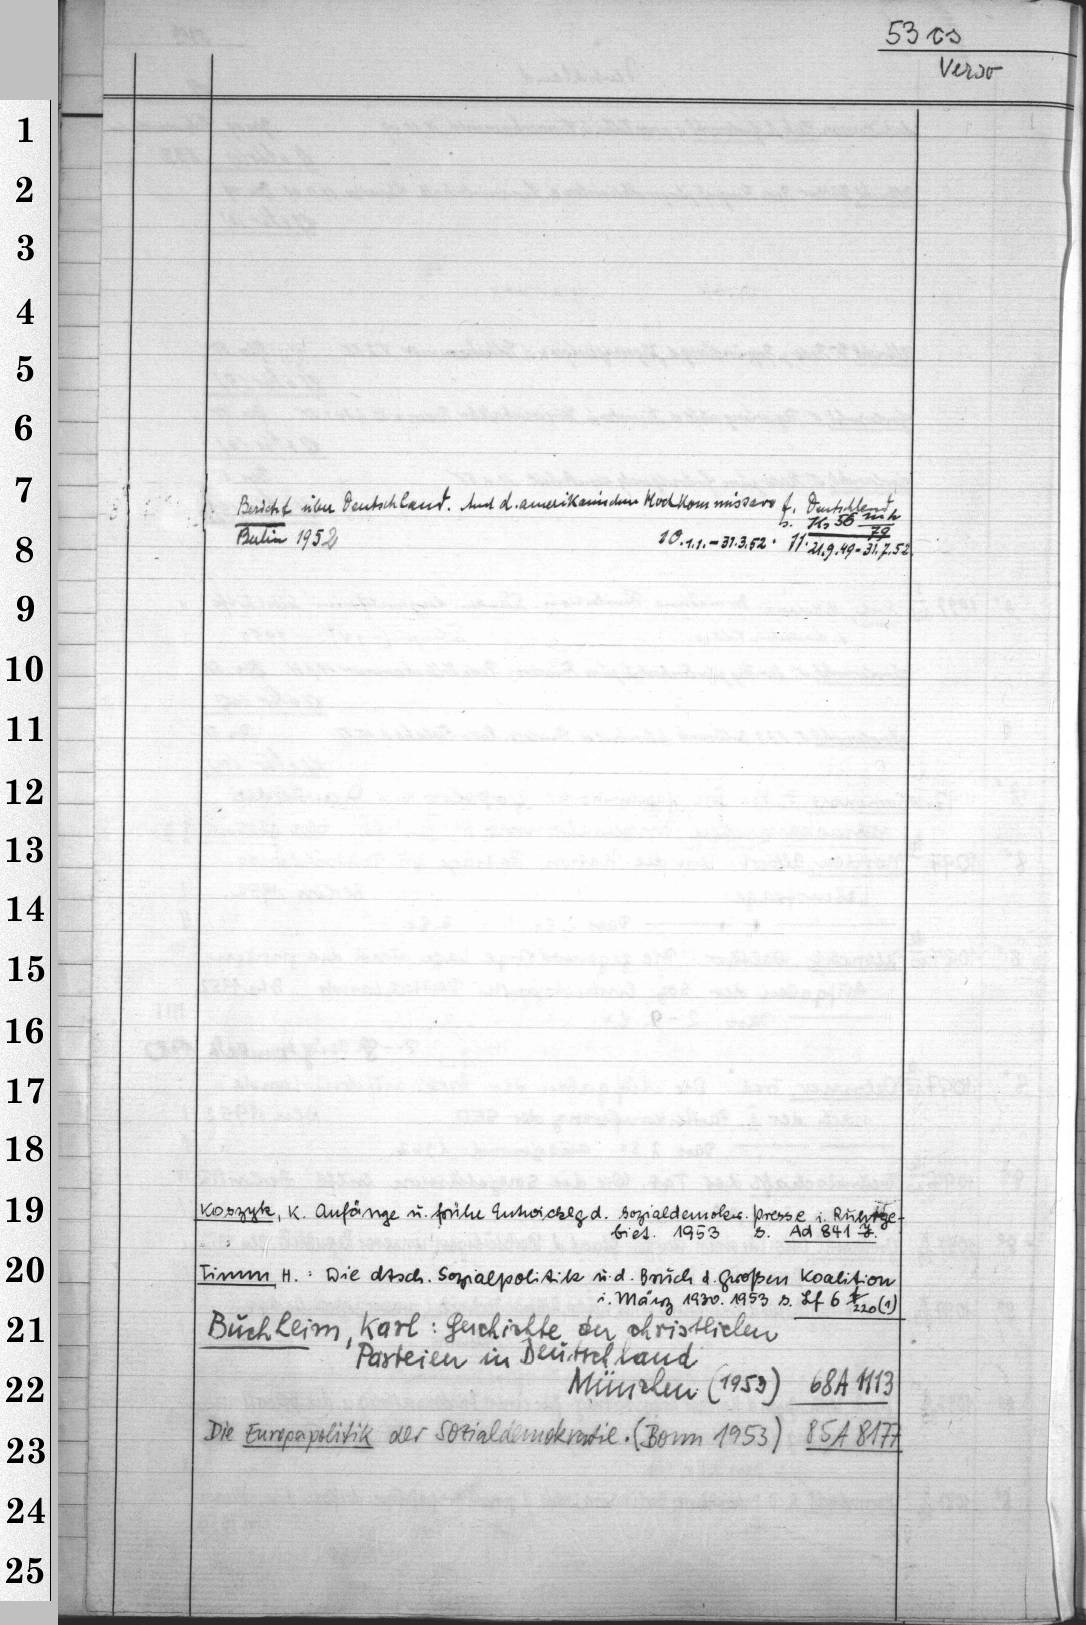 53 cs
Verso
1
2
3
4
5
6
7
Bericht über Deutschland. Amt d. amerikanischen Hochkommissars f. Deutschland
s. Ks 56
79
8
Berlin 1952 10. 1.1. – 31.3.52. 11. 21.9.49 – 31.7.52.
9
10
11
12
13
14
15
16
17
18
19
Koszyk, K. Anfänge u. frühe Entwicklg d. sozialdemokr. Presse i. Ruhrge-
biet. 1953 s. Ad 841 z.
20
Timm H. : Die dtsch. Sozialpolitik u. d. Bruch d. großen Koalition
i. März 1930. 1953 s. Lf 6 220 (1)
21
Buchheim, Karl : Geschichte der christlichen
Parteien in Deutschland
22
München (1953) 68A 1113
23
Die Europapolitik der Sozialdemokratie. (Bonn 1953) 85A 8177
24
25